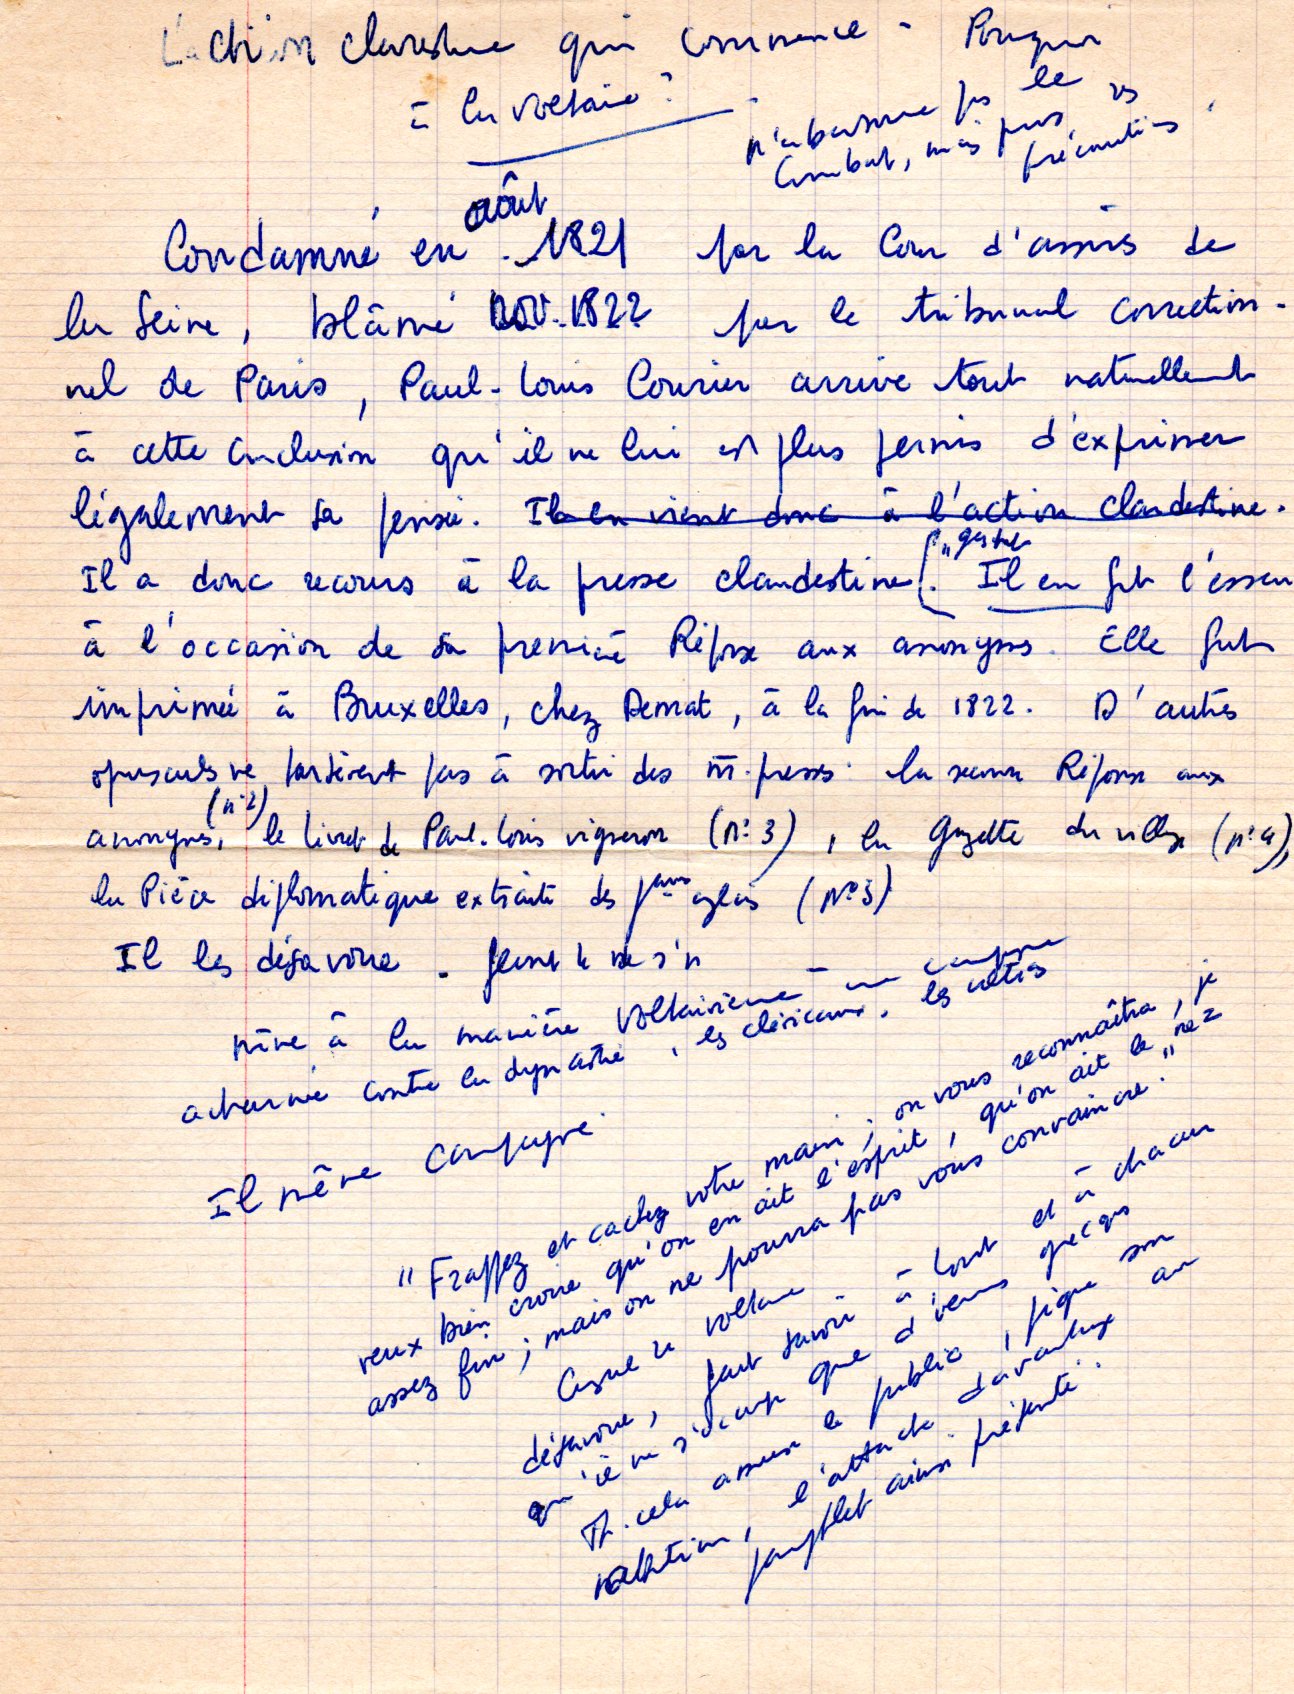 L'action clandestine qui commence - Pourquoi
à la Voltaire ?
n'abandonne pas le
combat, mais prend ses
précautions.
août
Condamné en 1821 par la Cour d'assises de
la Seine, blâmé nov. 1822 par le tribunal correction-
nel de Paris, Paul-Louis Courier arrive tout naturellement
à cette conclusion qu'il ne lui est plus permis d'exprimer
légalement sa pensée. Il en vient donc à l'action clandestine.
Il a donc recours à la presse clandestine. Il en fit l'essai
à l'occasion de sa première Réponse aux anonymes. Elle fut
imprimée à Bruxelles, chez Demat, à la fin de 1822. D'autres
opuscules ne tardèrent pas à sortir des m. presses : la seconde Réponse aux
anonymes, (n° 2) le Livret de Paul-Louis vigneron (n° 3), la Gazette du village (n° 4),
la Pièce diplomatique extraite des jaux anglais (n° 5)
Il les désavoue. feint de ne s'
mène à la manière voltairienne une campagne
acharnée contre la dynastie, les cléricaux, les ultras
Il mène campagne
"Frappez et cachez votre main ; on vous reconnaîtra, je
veux bien croire qu'on en ait l'esprit, qu'on ait le nez
assez fin ; mais on ne pourra pas vous convaincre."
Comme Voltaire
désavoue, fait savoir à tout et à chacun
qu'il ne s'occupe que d'
Tt cela amuse le public, pique son
attention, l'attache davantage au
pamphlet ainsi présenté.